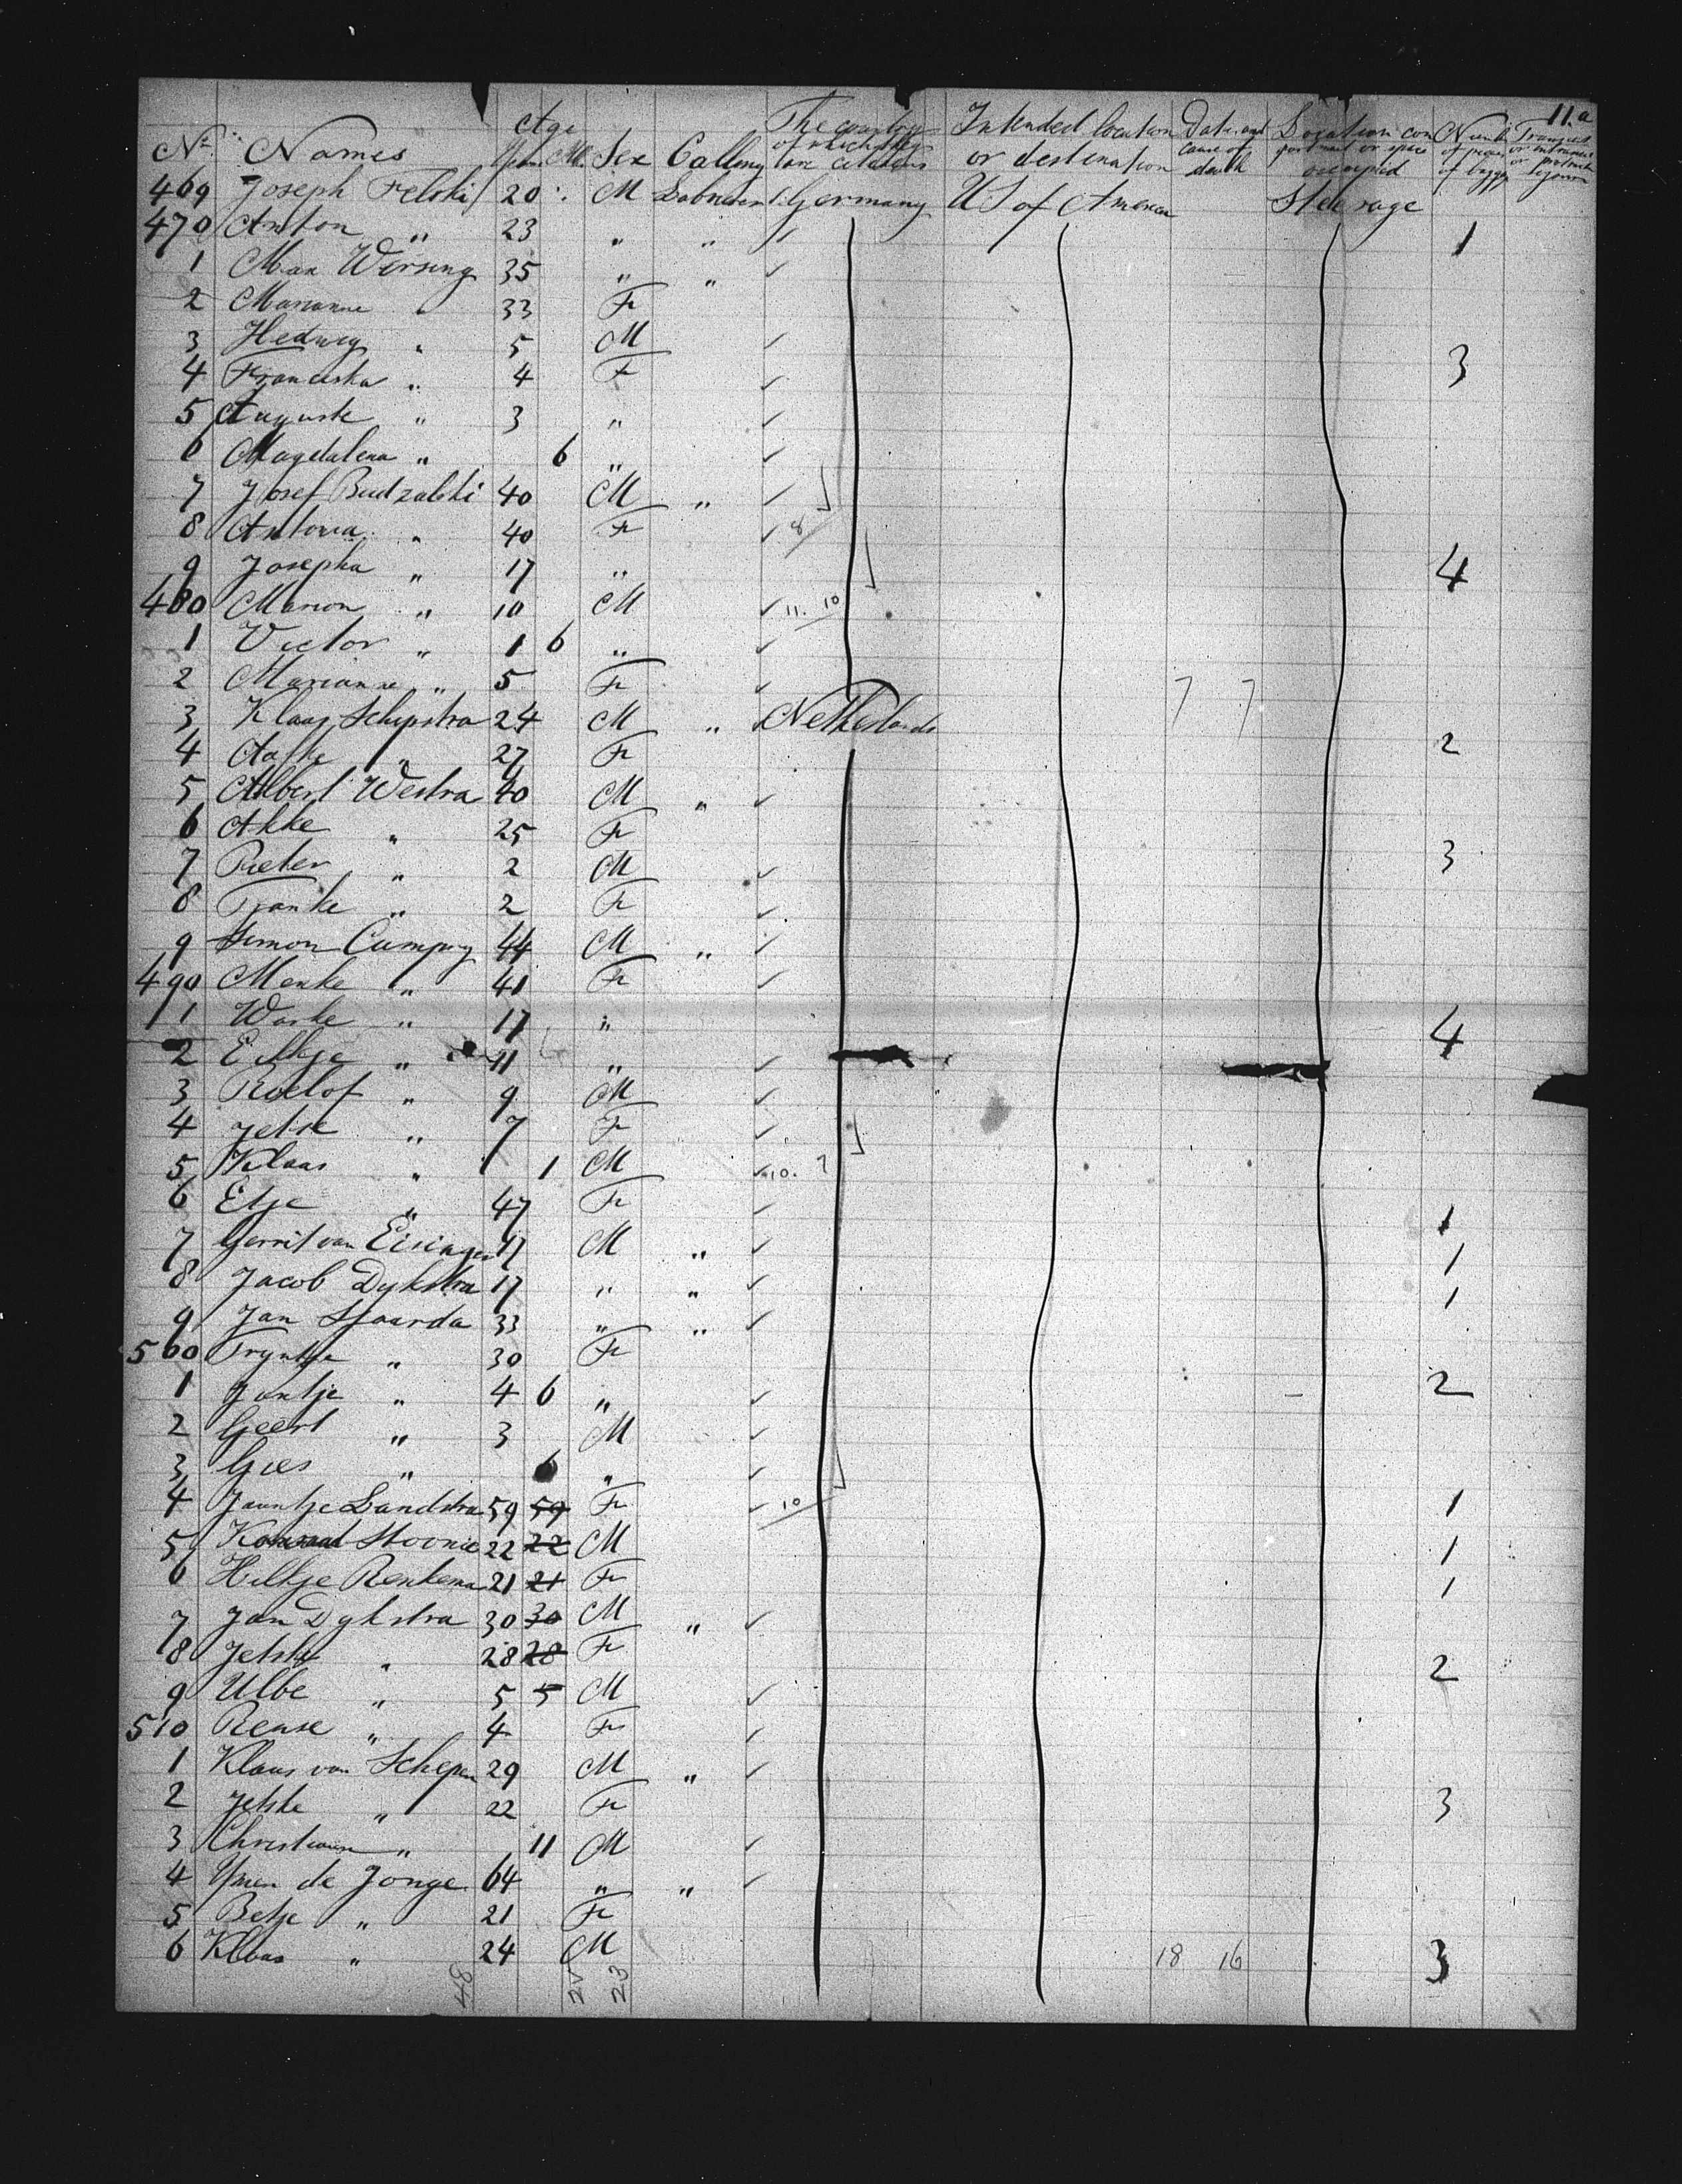 11.a
No. Names Age Years Mo. Sex Calling The country of which they are citizens Intended location or destination Date and cause of death Location compartment or space occupied Number of pieces of baggage Transient or intransient or protracted sojourn
469 Joseph Felski 20 M Labourer Germany US of America Steerage
470 Anton " 23 " " 1
1 Max Wersing 35 " "
2 Marianne " 33 F
3 Hedwig " 5 M
4 Franciska " 4 F 3
5 Auguste " 3 "
6 Magdalena " 6 "
7 Josef Budzalski 40 M "
8 Antonia " 40 F 8
9 Josepha " 17 " 4
480 Marion " 10 M 11. 10
1 Victor " 1 6 "
2 Marianne " 5 F
3 Klaas Schipstra 24 M " Netherlands 7 7
4 Aafke " 27 F 2
5 Albert Westra 40 M "
6 Akke " 25 F
7 Pieter " 2 M 3
8 Tjanke " 2 F
9 Simon 44 M "
490 Menke " 41 F
1 " 17 " 4
2 Eelkje " 11 "
3 Roelof " 9 M
4 Jetske " 7 F
5 Klaas " 1 M 10. 7
6 Etje " 47 F 1
7 Gerrit van Eisinga 17 M " 1
8 Jacob Dykstra 17 " " 1
9 Jan Sjaarda 33 " "
500 Tryntje " 30 F
1 Jantje " 4 6 " 2
2 Geert " 3 M
3 Gies " 6 "
4 Jauntje Landstra 59 59 F 10 1
5 Konraad 22 22 M 1
6 Hilkje Renkema 21 21 F 1
7 Jan Dykstra 30 30 M "
8 Jetske " 28 28 F 2
9 Ulbe " 5 5 M
510 Rense " 4 F
1 Klaas van Schepen 29 M "
2 Jetske " 22 F 3
3 Christiaan " 11 M
4 Ymen de Jonge 64 " "
5 Betje " 21 F
6 Klaas " 24 M 18 16 3
48 25 23